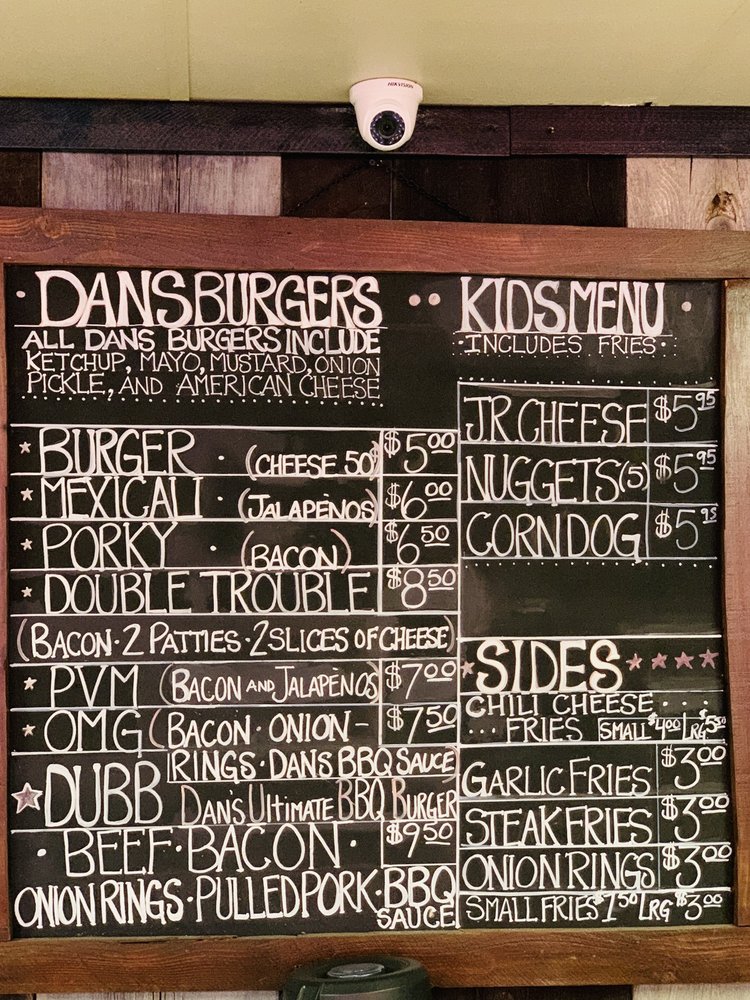 HIKVISION
DANS BURGERS
ALL DANS BURGERS INCLUDE
KETCHUP, MAYO, MUSTARD, ONION
PICKLE, AND AMERICAN CHEESE
BURGER · (CHEESE 50¢) $5.00
MEXICALI (JALAPEÑOS) $6.00
PORKY · (BACON) $6.50
DOUBLE TROUBLE $8.50
(BACON · 2 PATTIES · 2 SLICES OF CHEESE)
PVM (BACON AND JALAPEÑOS) $7.00
OMG (BACON · ONION- $7.50
RINGS · DANS BBQ SAUCE
DUBB DAN'S ULTIMATE BBQ BURGER
· BEEF · BACON · $9.50
ONION RINGS · PULLED PORK · BBQ
SAUCE
KIDS MENU
· INCLUDES FRIES ·
JR. CHEESE $5.95
NUGGETS (5) $5.95
CORN DOG $5.95
SIDES
CHILI CHEESE . . .
... FRIES SMALL $4.00 LRG $5.50
GARLIC FRIES $3.00
STEAK FRIES $3.00
ONION RINGS $3.00
SMALL FRIES $1.50 LRG $3.00